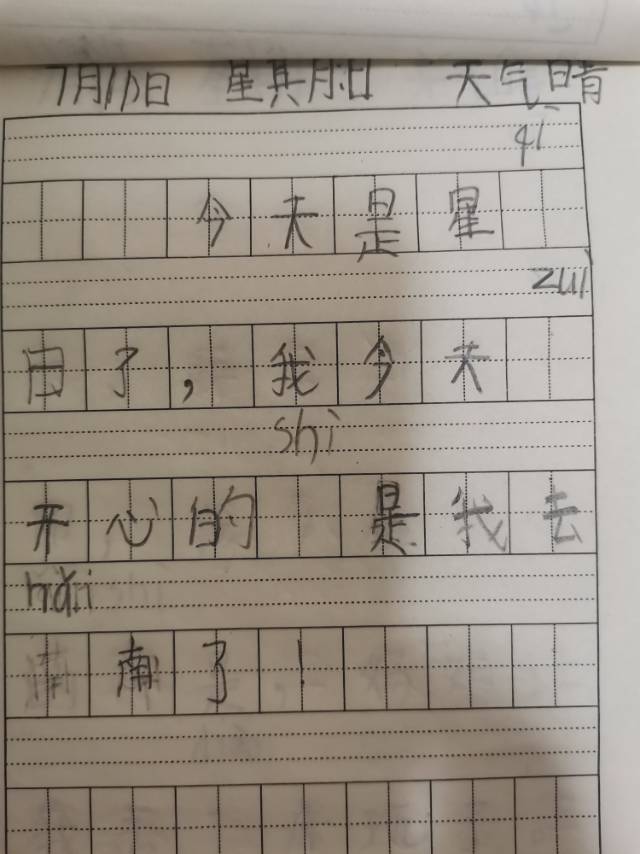 7月10日 星其月日 天气晴
qī
今天是星
zuì
田了，我今天
shì
开心的 是我去
hǎi
南了！